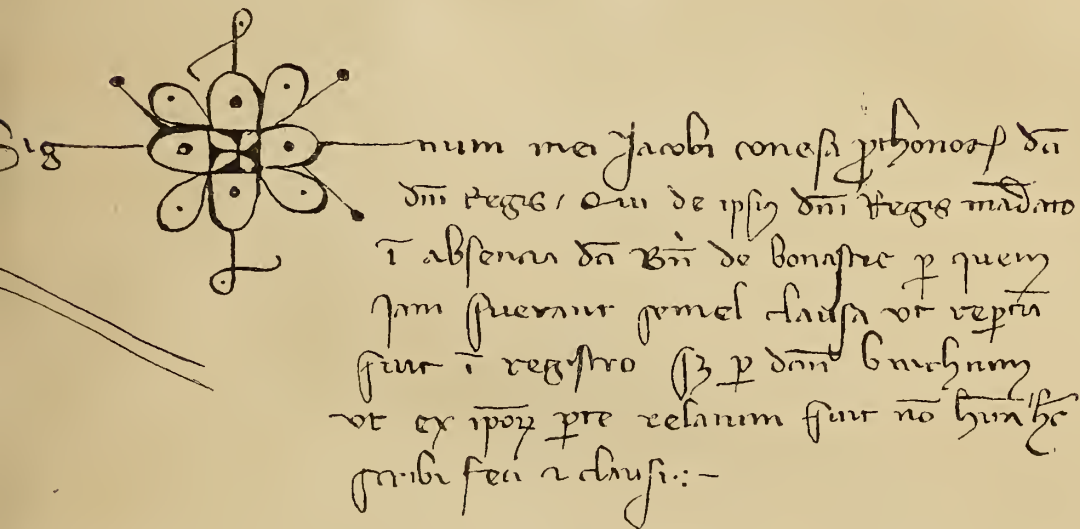 Signum mei Jacobi conesa ꝓthonoť dc̄i
dn̄i Regis / Qui de ipsiꝯ dn̄i Regis mādato
ī absencia dc̄i Bn̄ de bonastre ꝑ quem
Jam fuerant semel clausa vt reꝑtū
fuit ī registro sꝫ ꝑ dcm̄
vt ex ip̄oꝝ ꝑte relatum fuit nō
scribi feci ⁊ clausi :-